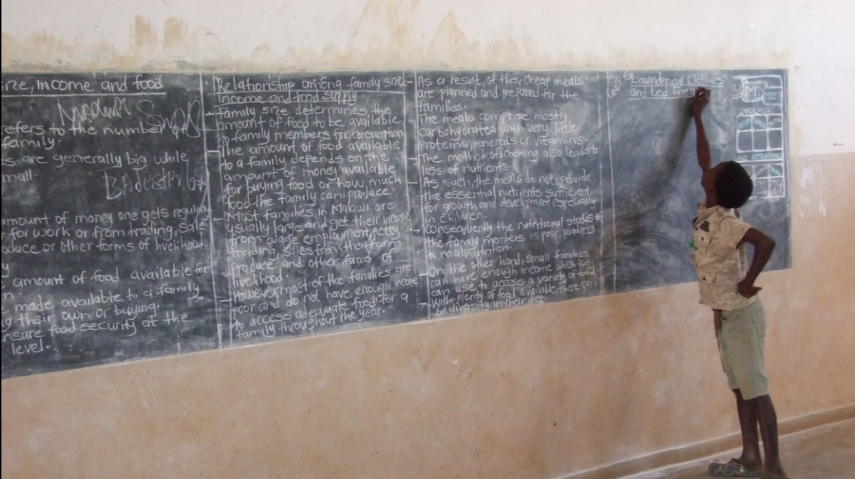 size, income and food
refers to the number of
family.
es are generally big while
small.
amount of money one gets regularly
for work or from trading, sale
produce or other forms of livelihood
y
amount of food available for
n
made available to a family
g their own or buying
ensure food security at the
level.
Relationship among family size
Income and food supply
- Family size determines the
amount of food to be available
to family members for consumption
- The amount of food available
to a family depends on the
amount of money available
for buying food or how much
food the family can produce.
- Most families in Malawi are
usually large and get their income
from wage employment, petty
trading, sales from their farm
produce and other forms of
livelihood
- However most of the families are
poor and do not have enough income
to access adequate food for a
family throughout the year.
- As a result, of this, cheap meals
are planned and prepared for the
families.
- The meals comprise mostly
carbohydrates with very little
proteins, minerals or vitamins.
- The method of cooking also leads to
loss of nutrients.
- As such, the meals do not provide
the essential nutrients sufficient
for growth and development especially
in children.
- Consequently the nutritional status of
the family members is poor leading
to malnutrition.
- On the other hand, small families
can have enough income which they
can use to access a variety of food
- With plenty of food available, there can
be diversity in their diet
Laundering Clothes
and bed linen